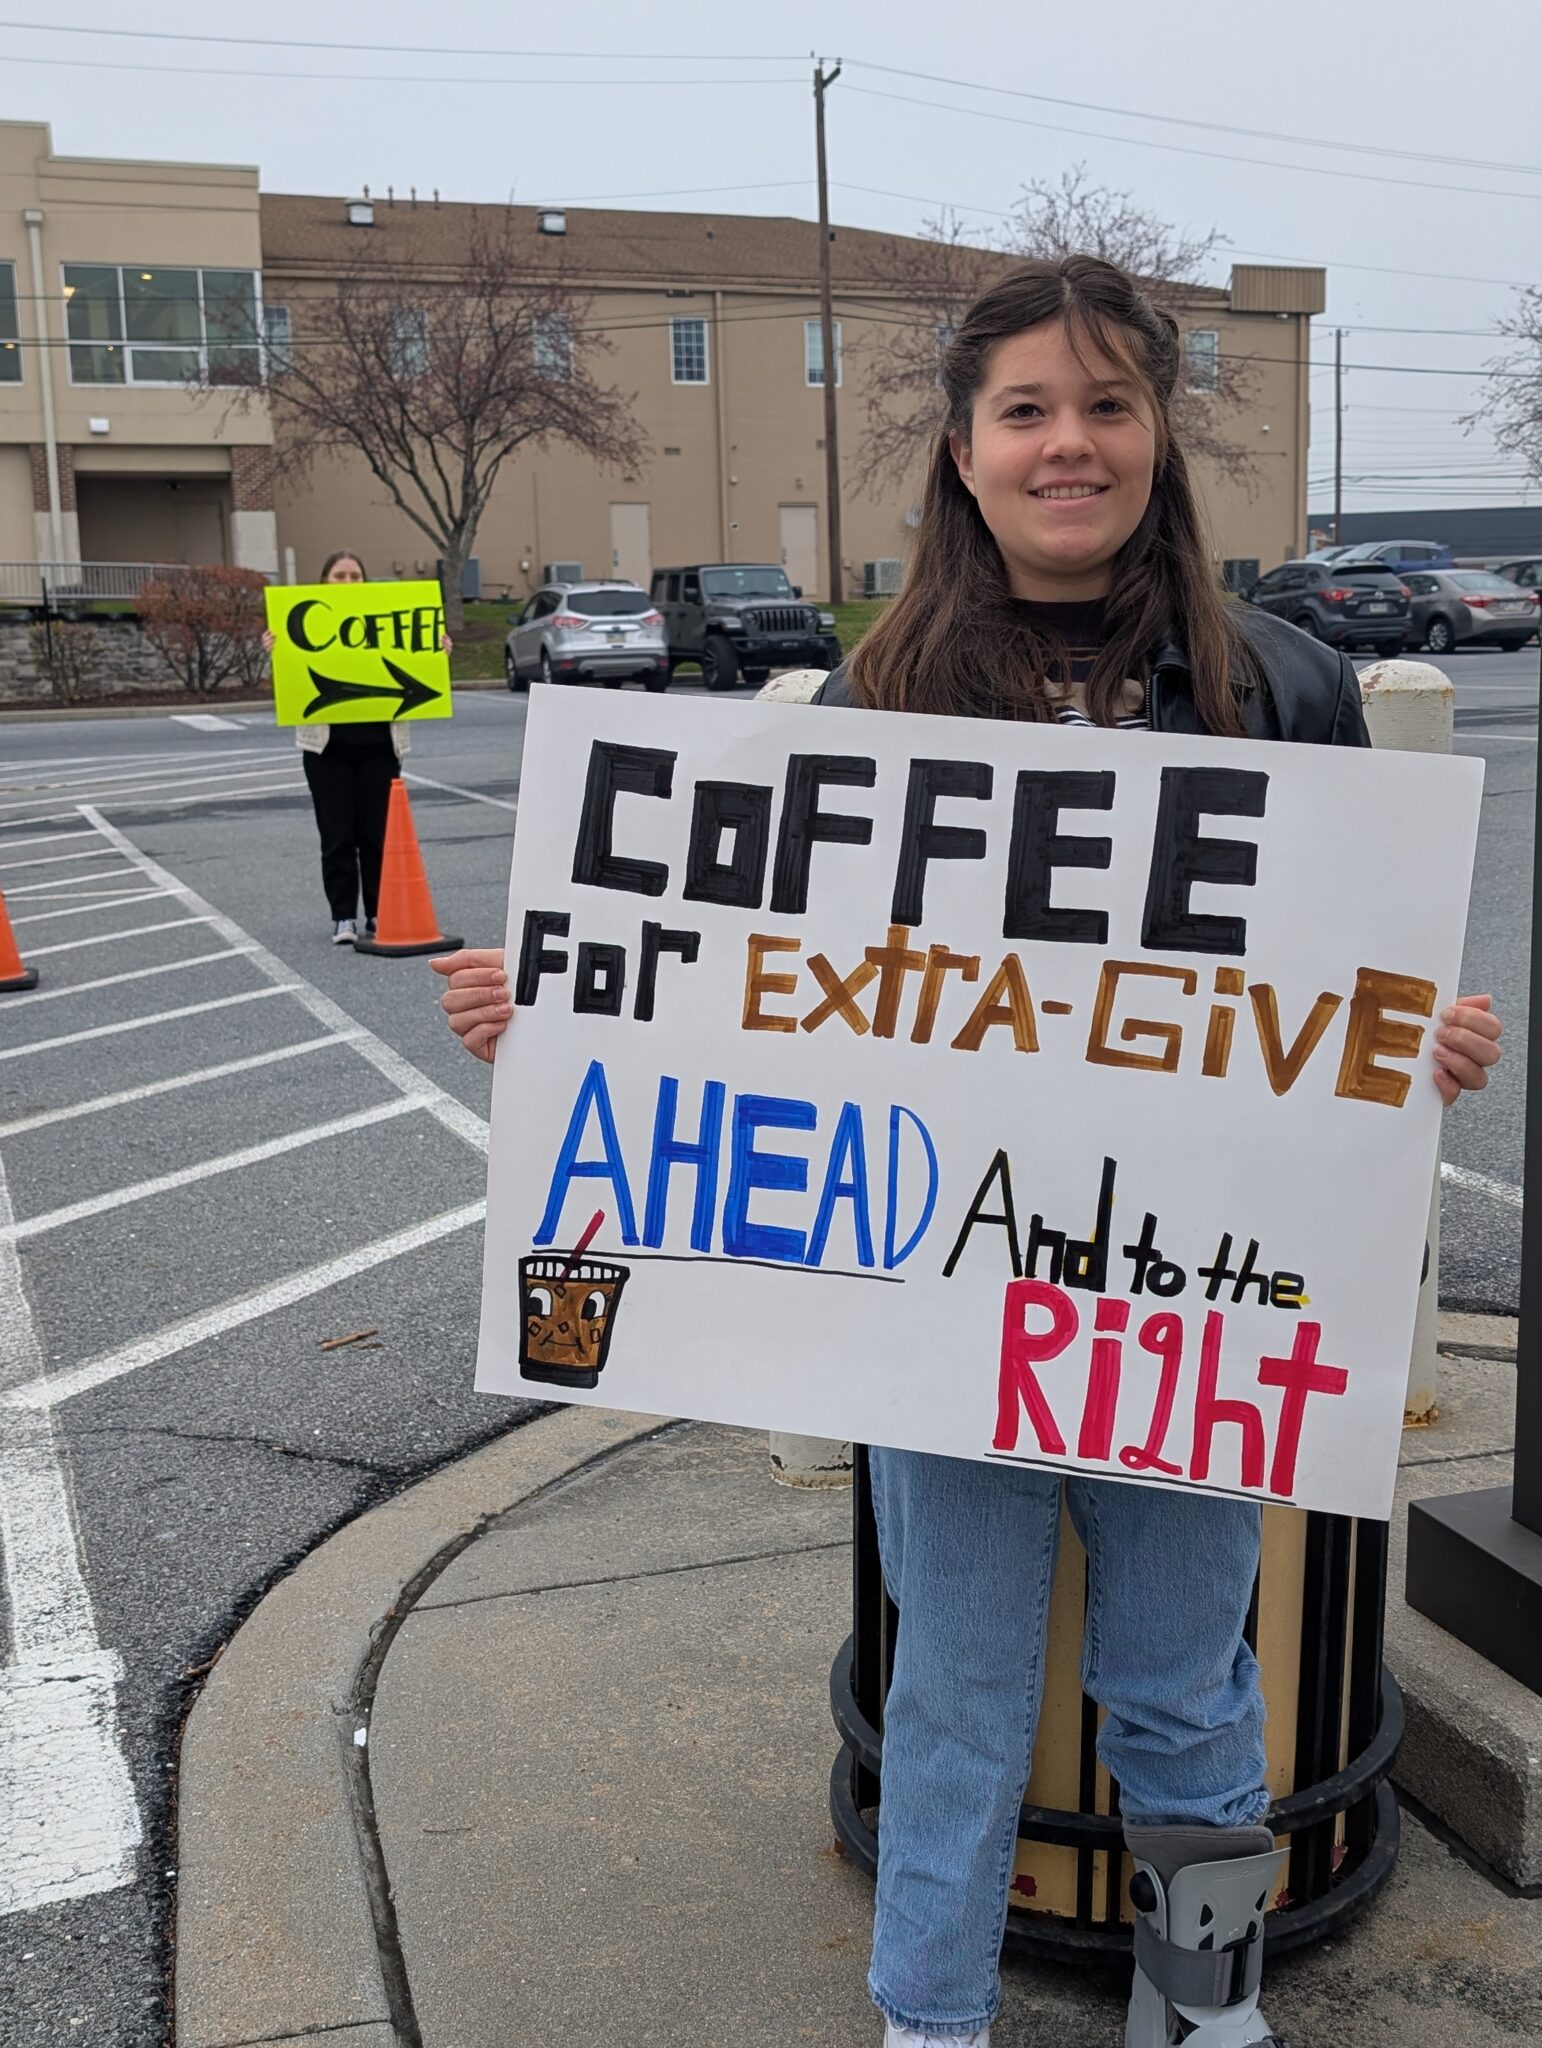 COFFEE
COFFEE
For Extra-Give
AHEAD And to the
Right